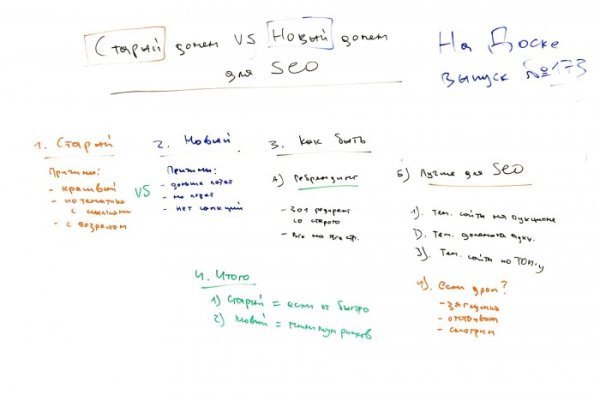 Старый домен VS Новый домен
для SEO
На Доске
выпуск №173
1. Старый
Причины:
- красивый
- по тематике
с ссылками
- с возрастом
VS
2. Новый
Причины:
- дольше
- нет санкций
3. Как быть
А) Ребрендинг
- 301 редирект
со старого
- Все на все стр.
Б) Лучше для SEO
1). Тем. сайты на аукционе
2). Тем. домены аукц.
3). Тем. сайты по ТОП-у
4). Если дроп?
- загнулись
- отстойник
- смотрим
4. Итого
1) Старый = если ок быстро
2) Новый = минимум рисков